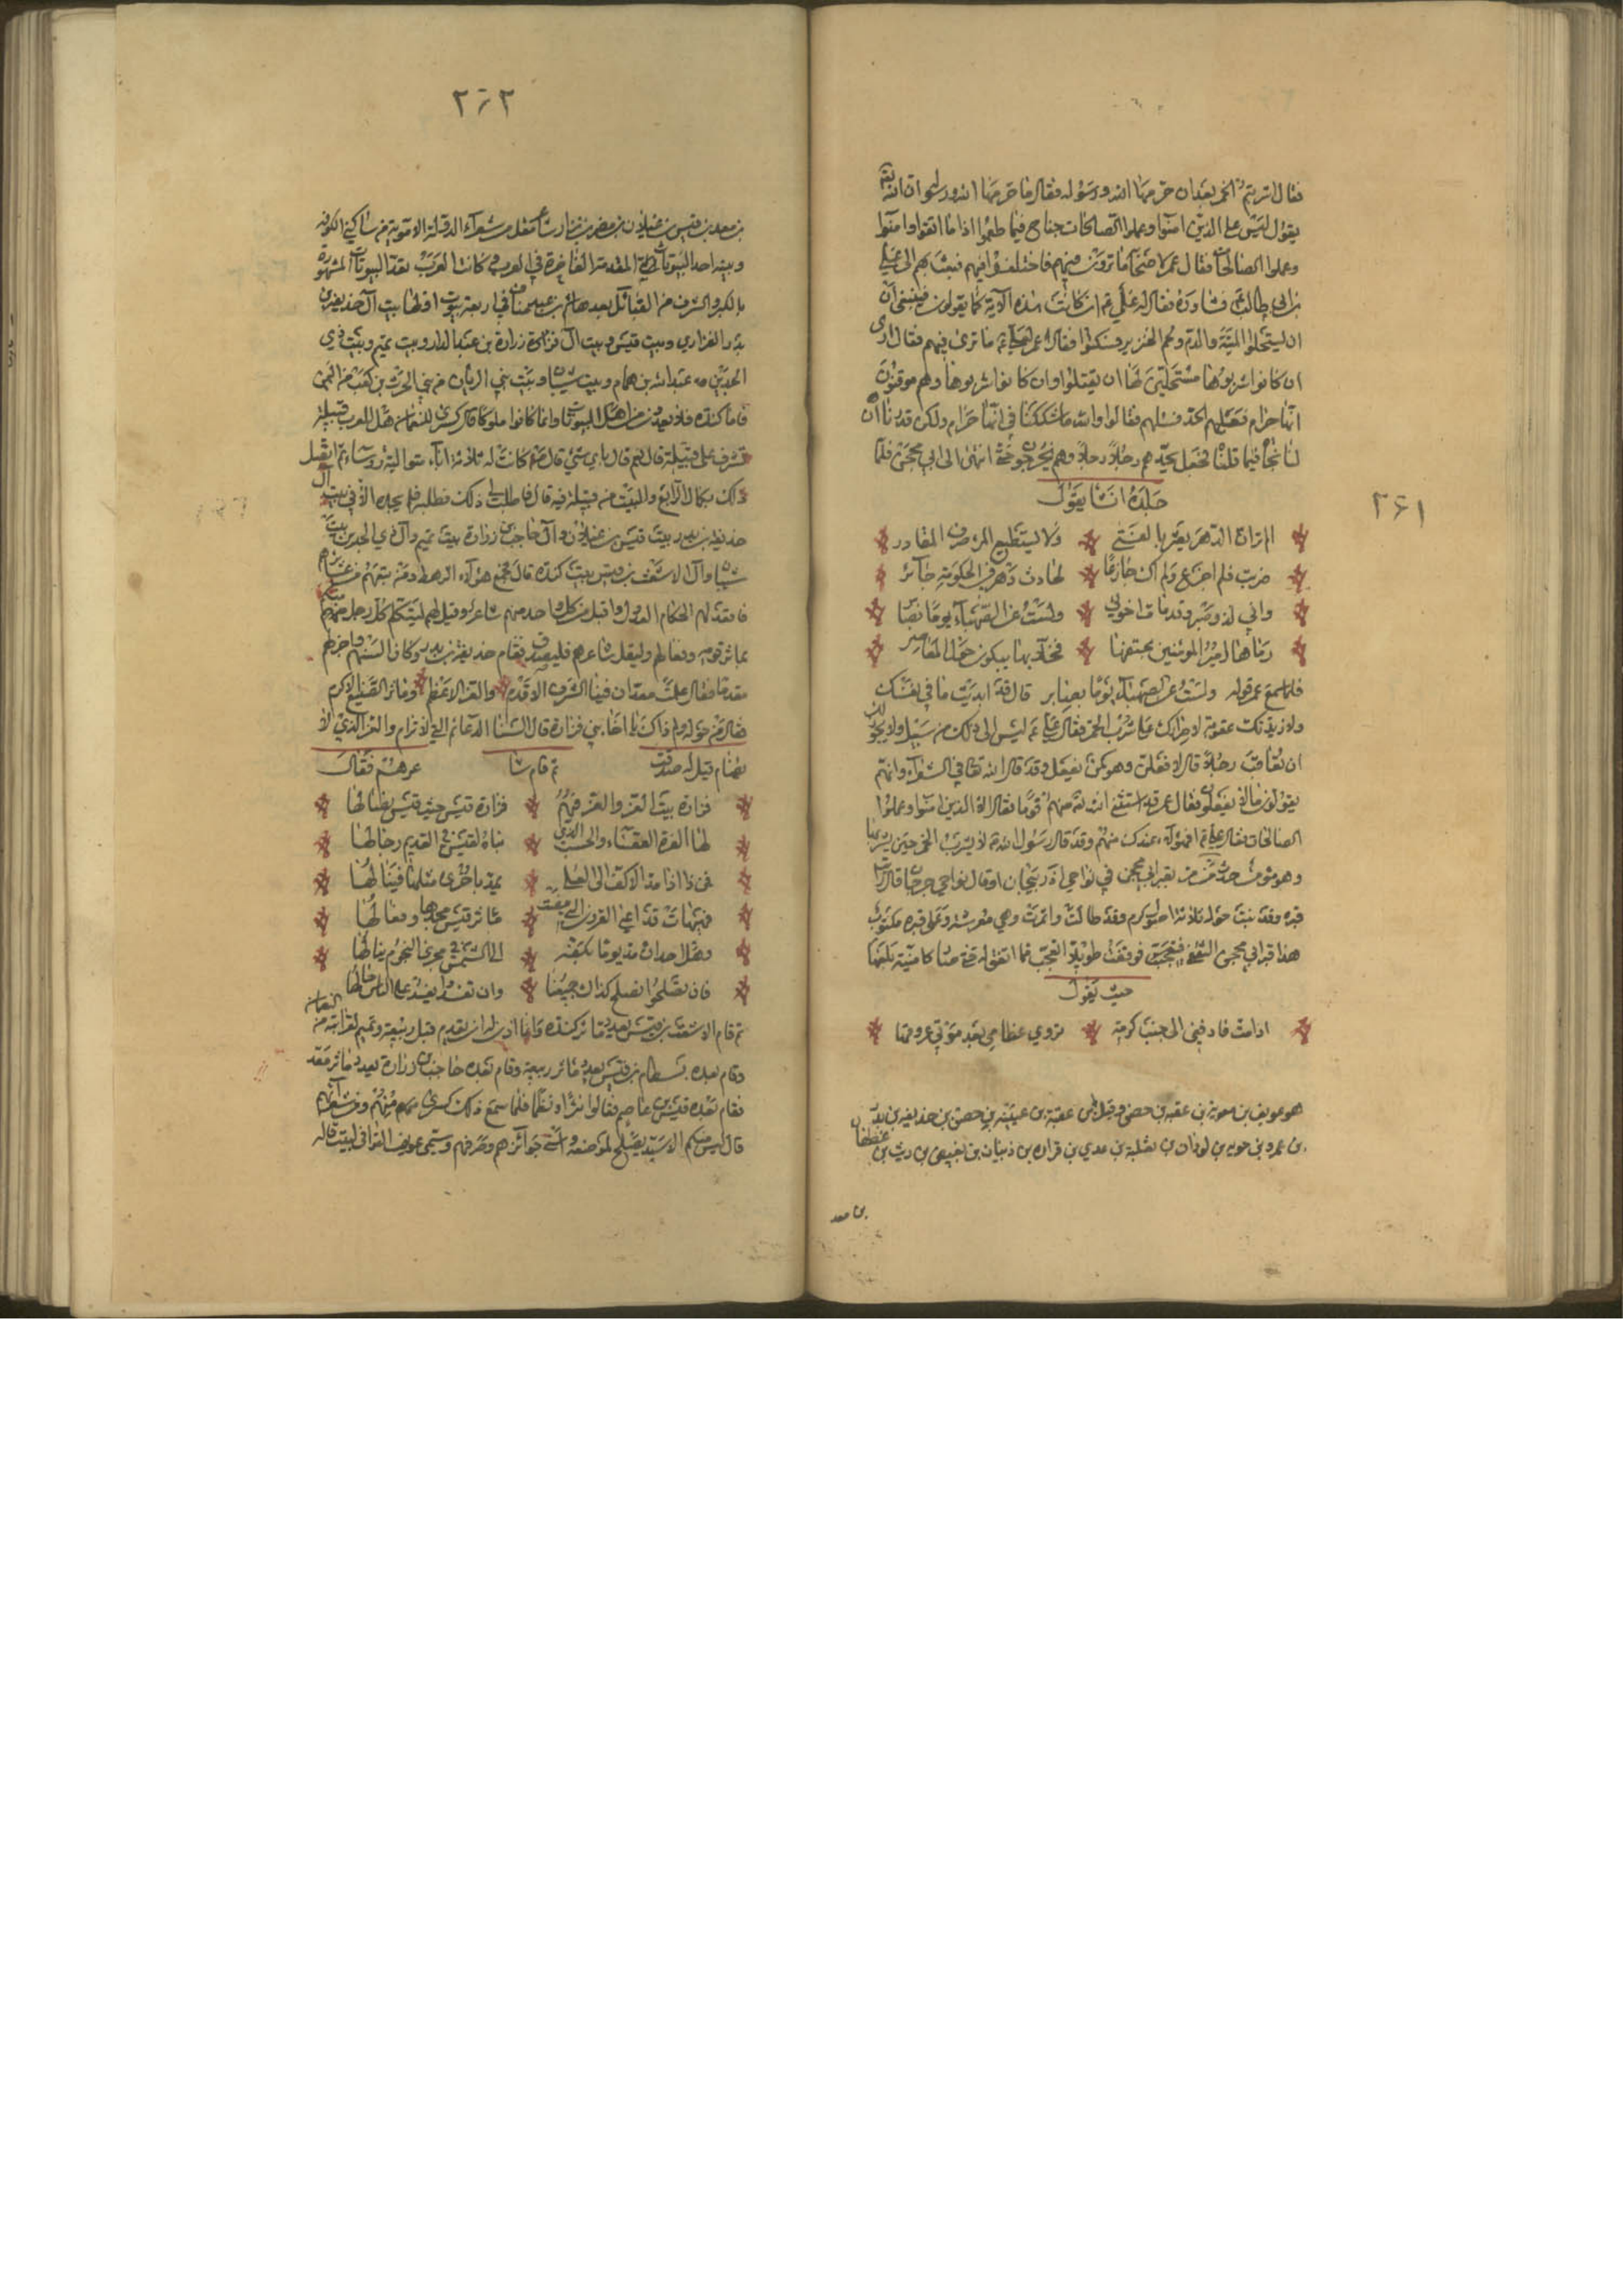 فقال اشربتم الخمر بعد ان حرمها الله ورسوله فقالوا ما حرمها الله ورسوله ان الله
يقول ليس على الذين امنوا وعملوا الصالحات جناح فيما طعموا اذا ما اتقوا وامنوا
وعملوا الصالحات فقال عمر لاصحابه ما ترون فيهم فاختلفوا فيهم فبعث بهم الى علي
بن ابي طالب فشاوره فقال علي ان كانت هذه الآية كما يقولون فينبغي ان
ان يستحلوا الميتة والدم ولحم الخنزير فسكتوا فقال عمر لعلي ما ترى فيهم فقال ارى
ان كانوا شربوها مستحلين لها ان يقتلوا وان كانوا شربوها وهم موقنون
انها حرام فسألهم فقالوا والله ما شككنا في انها حرام ولكن قدرنا ان
لنا نجاة فيما قلنا فجعل يحدهم رجلا رجلا وهم يخرجون حتى انتهى الى ابي محجن فلما
جلده انشا يقول
الم تر ان الدهر يعثر بالفتى ولا يستطيع المرء صرف المقادر
ضربت فلم اجزع ولم اك جازعا لحادث دهر في الحكومة جائر
واني لذو صبر وقد مات اخوتي ولست عن الصهباء يوما بصابر
رماها امير المؤمنين بحتفها فخلانها يبكون حول المعاصر
فلما سمع عمر قوله ولست عن الصهباء يوما بصابر قال قد ابديت ما في نفسك
ولازيدنك عقوبة لاصرارك على شرب الخمر فقال علي ليس الى ذلك من سبيل ولا يجوز
ان تعاقب رجلا قال لافعلن وهو لم يفعل وقد قال الله تعالى في الشعراء وانهم
يقولون ما لا يفعلون فقال عمر قد استثنى الله منهم قوما فقال الا الذين امنوا وعملوا
الصالحات فقال علي افهؤلاء عندك منهم وقد قال رسول الله لا يشرب الخمر حين يشربها
وهو مؤمن حدث من مر بقبر ابي محجن في نواحي اذربيجان او قال نواحي جرجان قال رأيت
قبره وقد نبت حوله ثلاثة اصول كرم وقد طالت واثمرت وهي معرشة وعلى قبره مكتوب
هذا قبر ابي محجن الثقفي فوقفت طويلا اتعجب مما اتفق له حتى صار كامنية بلغها
حيث يقول
اذا مت فادفني الى جنب كرمة تروي عظامي بعد موتي عروقها
هو عويف بن معوية بن عقبة بن حصن وقيل بن عقبة بن عيينة بن حصن بن حذيفة بن بدر
بن عمرو بن جويه بن لوذان بن ثعلبة بن عدي بن فزاره بن ذبيان بن بغيض بن ريث بن غطفان
بن سعد
٢٦١
٢٦٢
بن سعد بن قيس بن غيلان بن مضر بن نزار شاعر مقل من شعراء الدولة الاموية من ساكني الكوفه
وبيته احد البيوتات المقدمة الفاخرة في العرب وكانت العرب تعد البيوتات المشهورة
بالكبر والشرف من القبائل بعد هاشم بن عبد مناف اربعة بيوت اولها بيت آل حذيفة بن
بدر الفزاري وبيت قيس وبيت آل زرارة بن عدس الدارمي بيت تميم وبيت ذي
الجدين عبد الله بن همام وبيت شيبان وبيت بني الريان من بني الحرث بن كعب من اليمن
فاما كنده فلا يعدون من اهل البيوتات وانما كانوا ملوكا قال كسرى للنعمان هل للعرب قبيلة
تشرف على قبيلة قال نعم قال باي شيء قال من كانت له ثلاثة آباء متوالية رؤساء ثم اتصل
ذلك بكمال الرابع والبيت من قبيلته فيه قال فاطلب لي ذلك فطلبه فلم يجده الا في آل
حذيفة بن بدر بيت قيس بن غيلان وآل حاجب بن زرارة بيت تميم وآل ذي الجدين بيت
شيبان وآل الاشعث بن قيس بيت كنده قال فجمع هؤلاء الرهط ومن تبعهم من عشائرهم
فاقعد لهم الحكام العدول واقبل من كل واحد منهم شاعر وقيل لهم ليتكلم كل رجل منكم
بماثر قومه وفعالهم وليقل شاعرهم فليصدق فقام حذيفة بن بدر وكان السنهم واجراهم
مقدما فقال علمت معد ان فينا الشرف الاقدم والعز الاعظم وماثر الصنيع الاكرم
فقال من حوله ولم ذاك يا اخا بني فزارة قال السنا الدعائم التي لا ترام والعز الذي لا
يضام قيل له صدقت ثم قام شاعرهم فقال
فزارة بيت العز والعز فيهم فزارة قيس حسب قيس نضالها
لها العزة القعساء والحسب الذي بناه لقيس في القديم رجالها
فمن ذا اذا مد الاكف الى العلى يمد باخرى مثلها فينالها
فهيهات قد اعيى القرون التي مضت ماثر قيس مجدها وفعالها
وهل احد ان مد يوما بكفه الى الشمس في مجرى النجوم ينالها
فان يصلحوا يصلح كذاك جميعنا وان تفسدوا يفسد على الناس حالها
ثم قام الاشعث بن قيس يعدد ماثر كنده وانما اذن له ان يقدم قبل ربيعة وتميم لقرابته من النعمان
وقام بعده بسطام بن قيس يعدد ماثر ربيعة وقام بعده حاجب بن زرارة يعدد ماثر معد
فقام بعده قيس بن عاصم فقالوا نثرا ونظما فلما سمع ذلك كسرى منهم ومن شعرائهم
قال ليس منكم الا سيد يصلح لموضعه واسنى جوائزهم وصرفهم وسمي عويف القوافي لبيت قاله